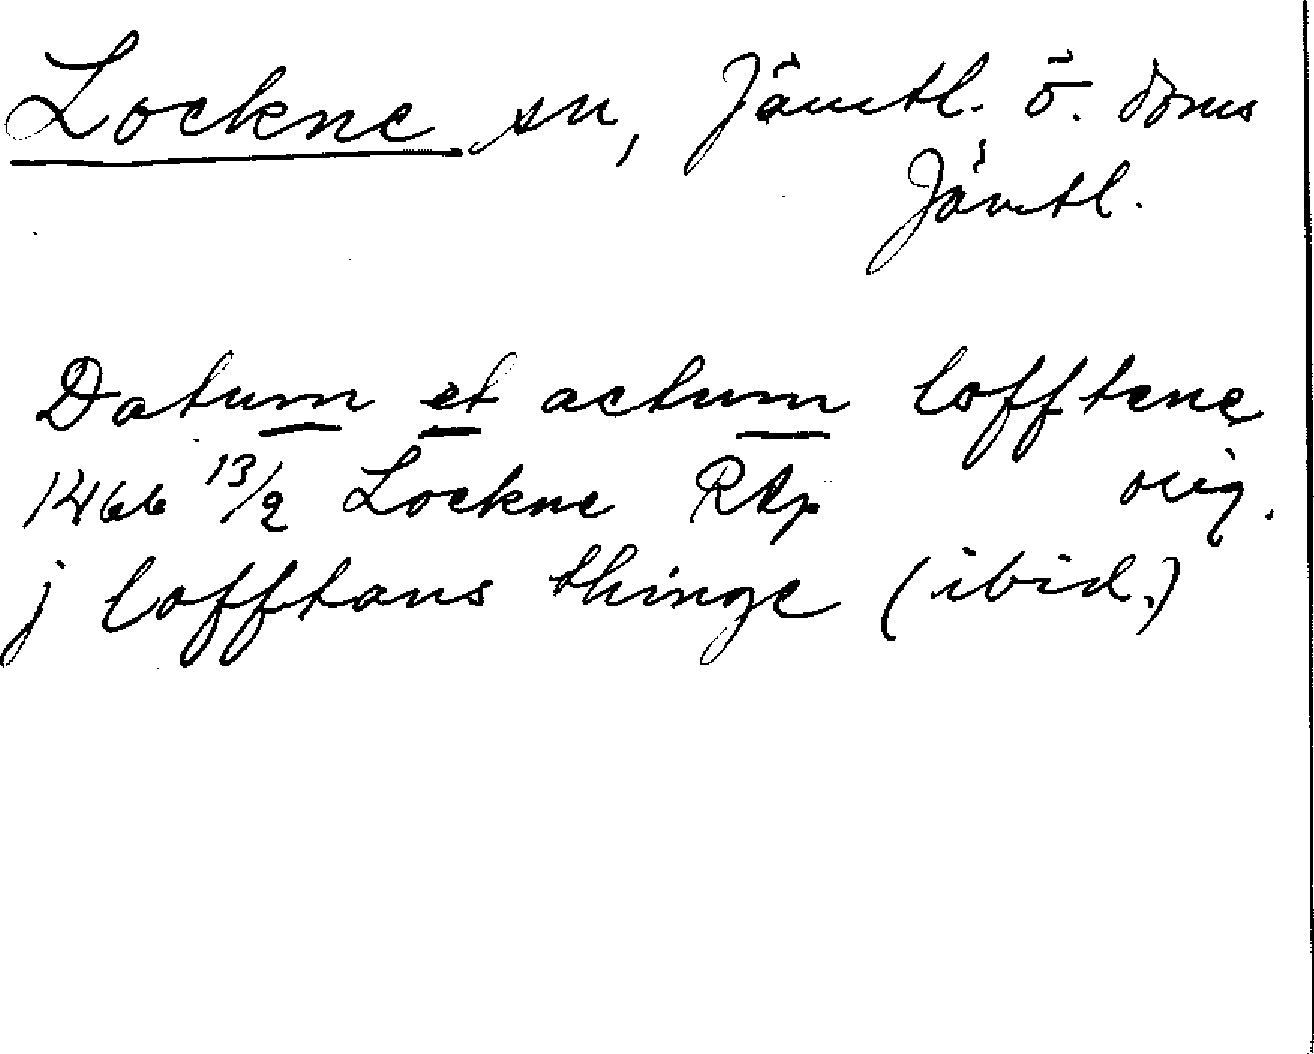 Lockne sn, Jämtl. ö. doms
Jämtl.
Datum et actum lofftene
1466 13/2 Lockne RAp orig.
j lofftans thinge (ibid.)